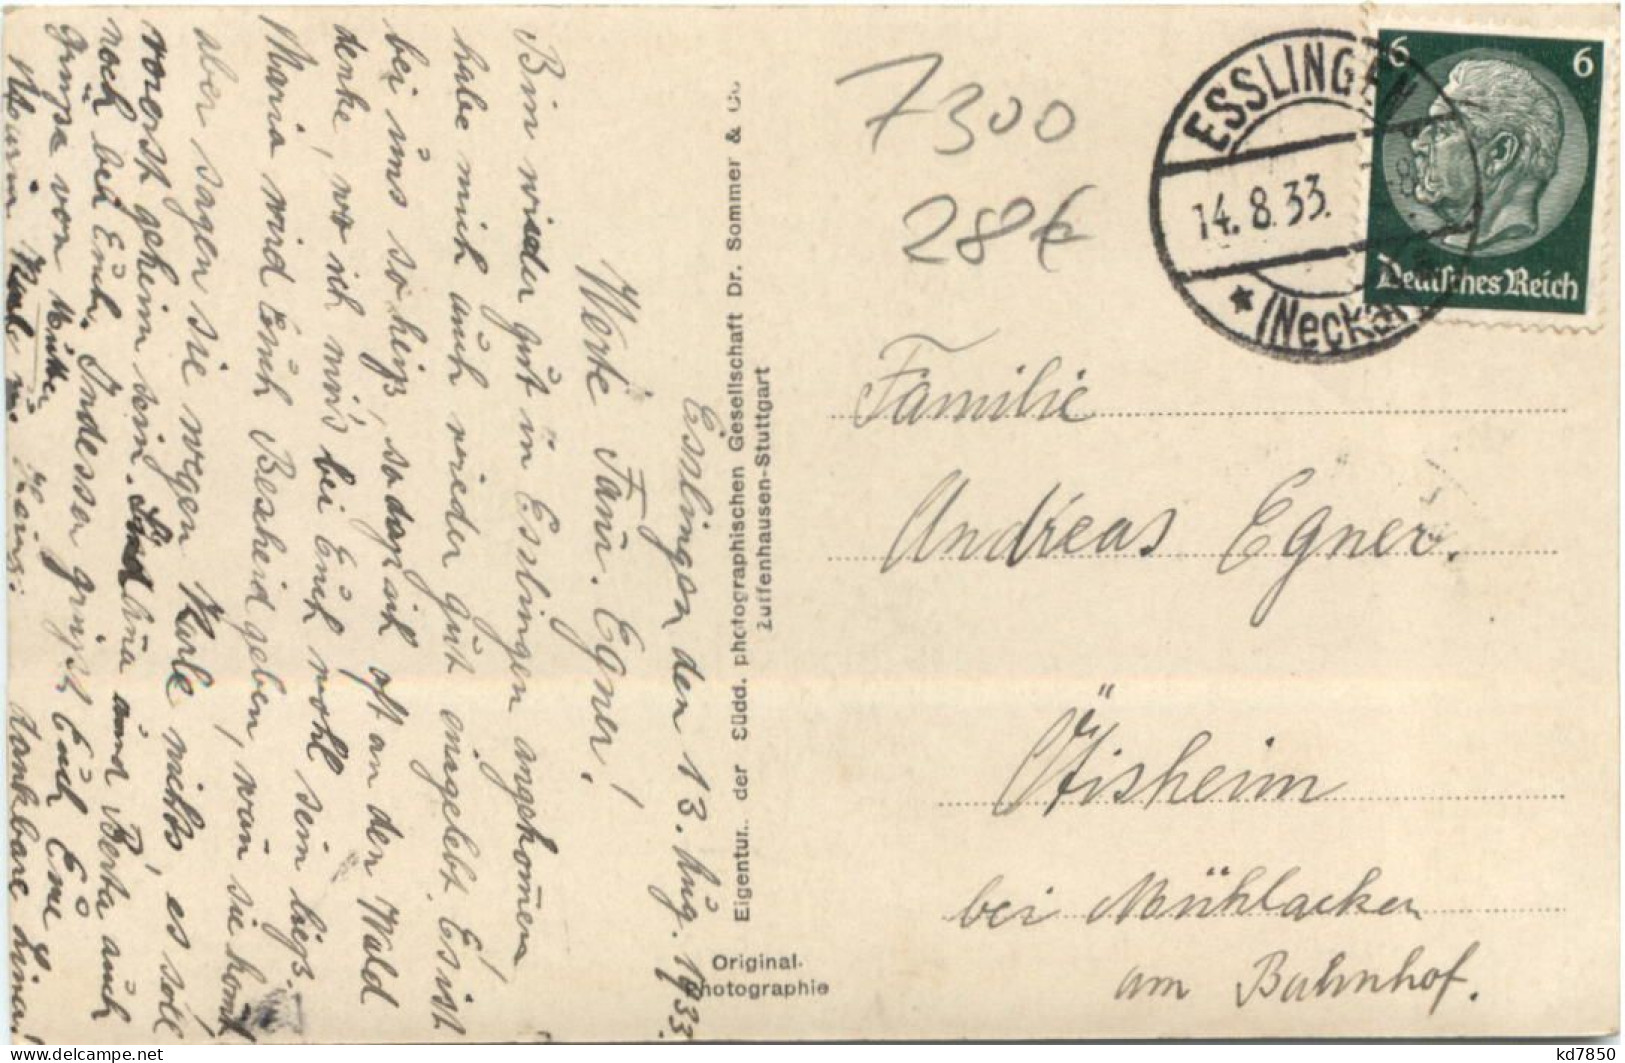 Esslingen den 13. Aug. 1933.
Werte Fam. Egner!
Bin wieder gut in Esslingen angekommen,
habe mich auch wieder gut eingelebt. Es ist
bei uns so heiß, sodaß ich oft an den Wald
denke, wo ich mir's bei Euch wohl sein ließ.
Maria wird Euch Bescheid geben, wann sie kommt
aber sagen sie wegen Karle nichts, es soll
vorerst geheim sein. Sind Lina und Berta auch
noch bei Euch. Indessen grüßt Euch Eure
dankbare Lina.
Grüße von Mutter
7300
28€
ESSLINGEN
14.8.33.
(Neckar)
6 6
Deutsches Reich
Familie
Andreas Egner.
Ötisheim
bei Mühlacker
am Bahnhof.
Eigentum der Südd. photographischen Gesellschaft Dr. Sommer & Co.
Zuffenhausen-Stuttgart
Original-
Photographie
www.delcampe.net
kd7850